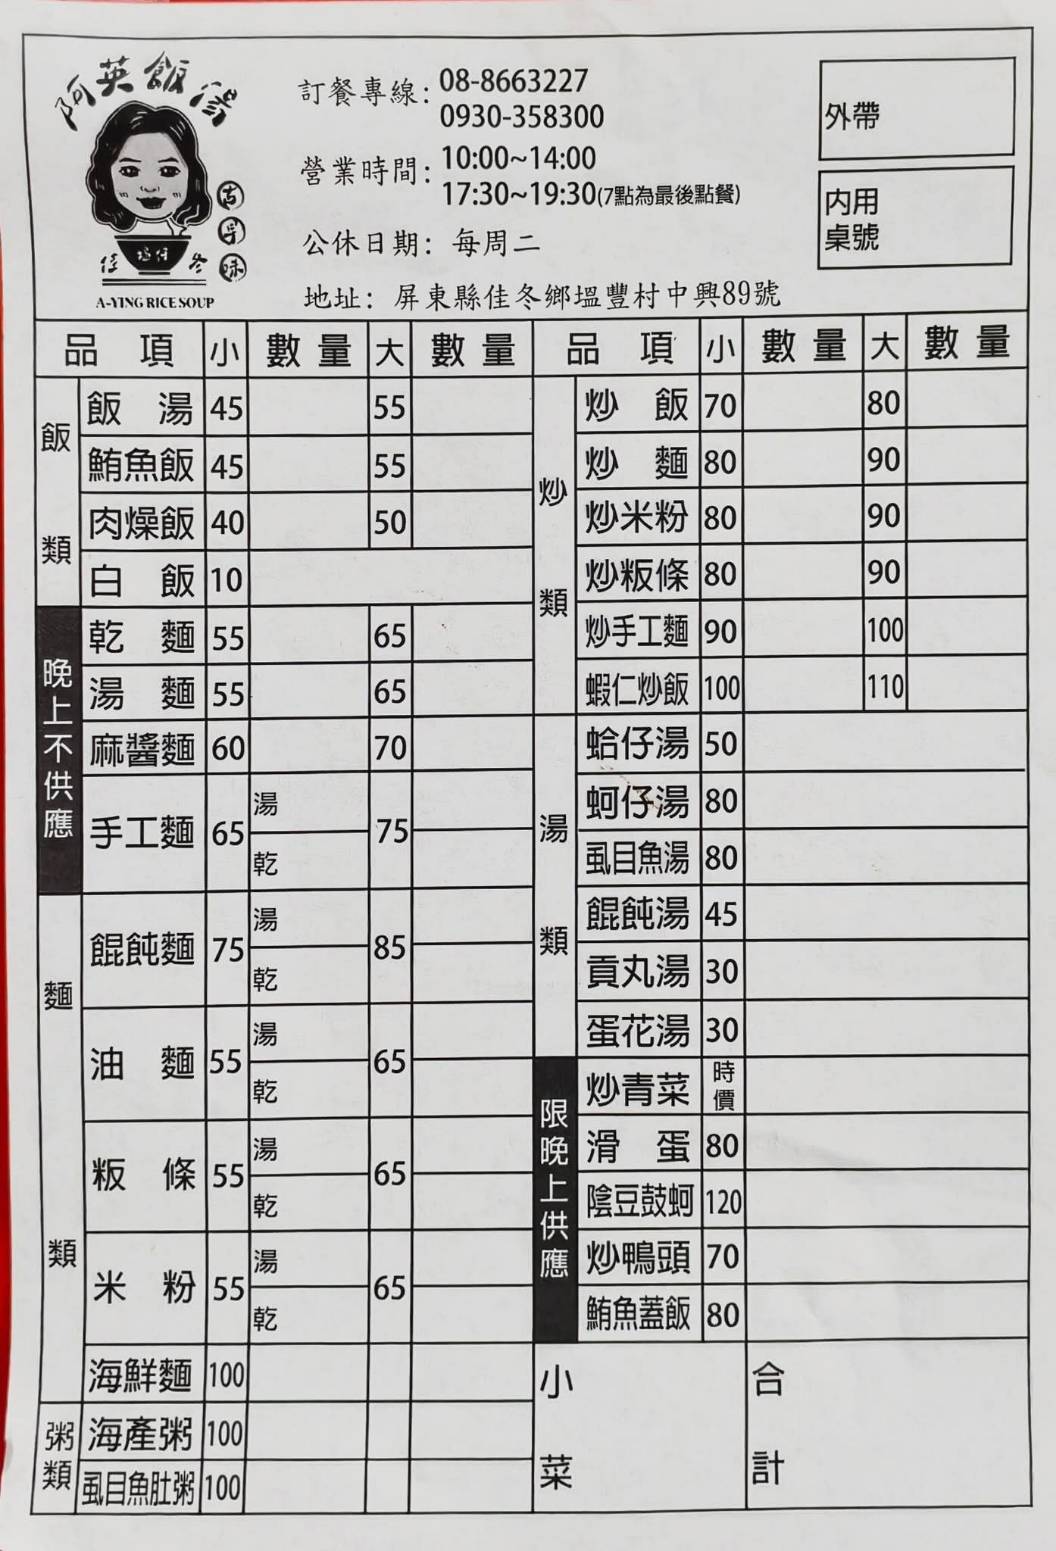 阿英飯湯
古早味
佳冬
塭仔
A-YING RICE SOUP
訂餐專線: 08-8663227
0930-358300
營業時間: 10:00~14:00
17:30~19:30(7點為最後點餐)
公休日期: 每周二
地址: 屏東縣佳冬鄉塭豐村中興89號
外帶
内用
桌號
品 項 小 數量 大 數量
飯類
飯 湯 45 55
鮪魚飯 45 55
肉燥飯 40 50
白 飯 10
晚上不供應
乾 麵 55 65
湯 麵 55 65
麻醬麵 60 70
手工麵 65 湯 乾 75
麵類
餛飩麵 75 湯 乾 85
油 麵 55 湯 乾 65
粄 條 55 湯 乾 65
米 粉 55 湯 乾 65
海鮮麵 100
粥類
海產粥 100
虱目魚肚粥 100
品 項 小 數量 大 數量
炒類
炒 飯 70 80
炒 麵 80 90
炒米粉 80 90
炒粄條 80 90
炒手工麵 90 100
蝦仁炒飯 100 110
湯類
蛤仔湯 50
蚵仔湯 80
虱目魚湯 80
餛飩湯 45
貢丸湯 30
蛋花湯 30
限晚上供應
炒青菜 時價
滑 蛋 80
陰豆鼓蚵 120
炒鴨頭 70
鮪魚蓋飯 80
小菜
合計